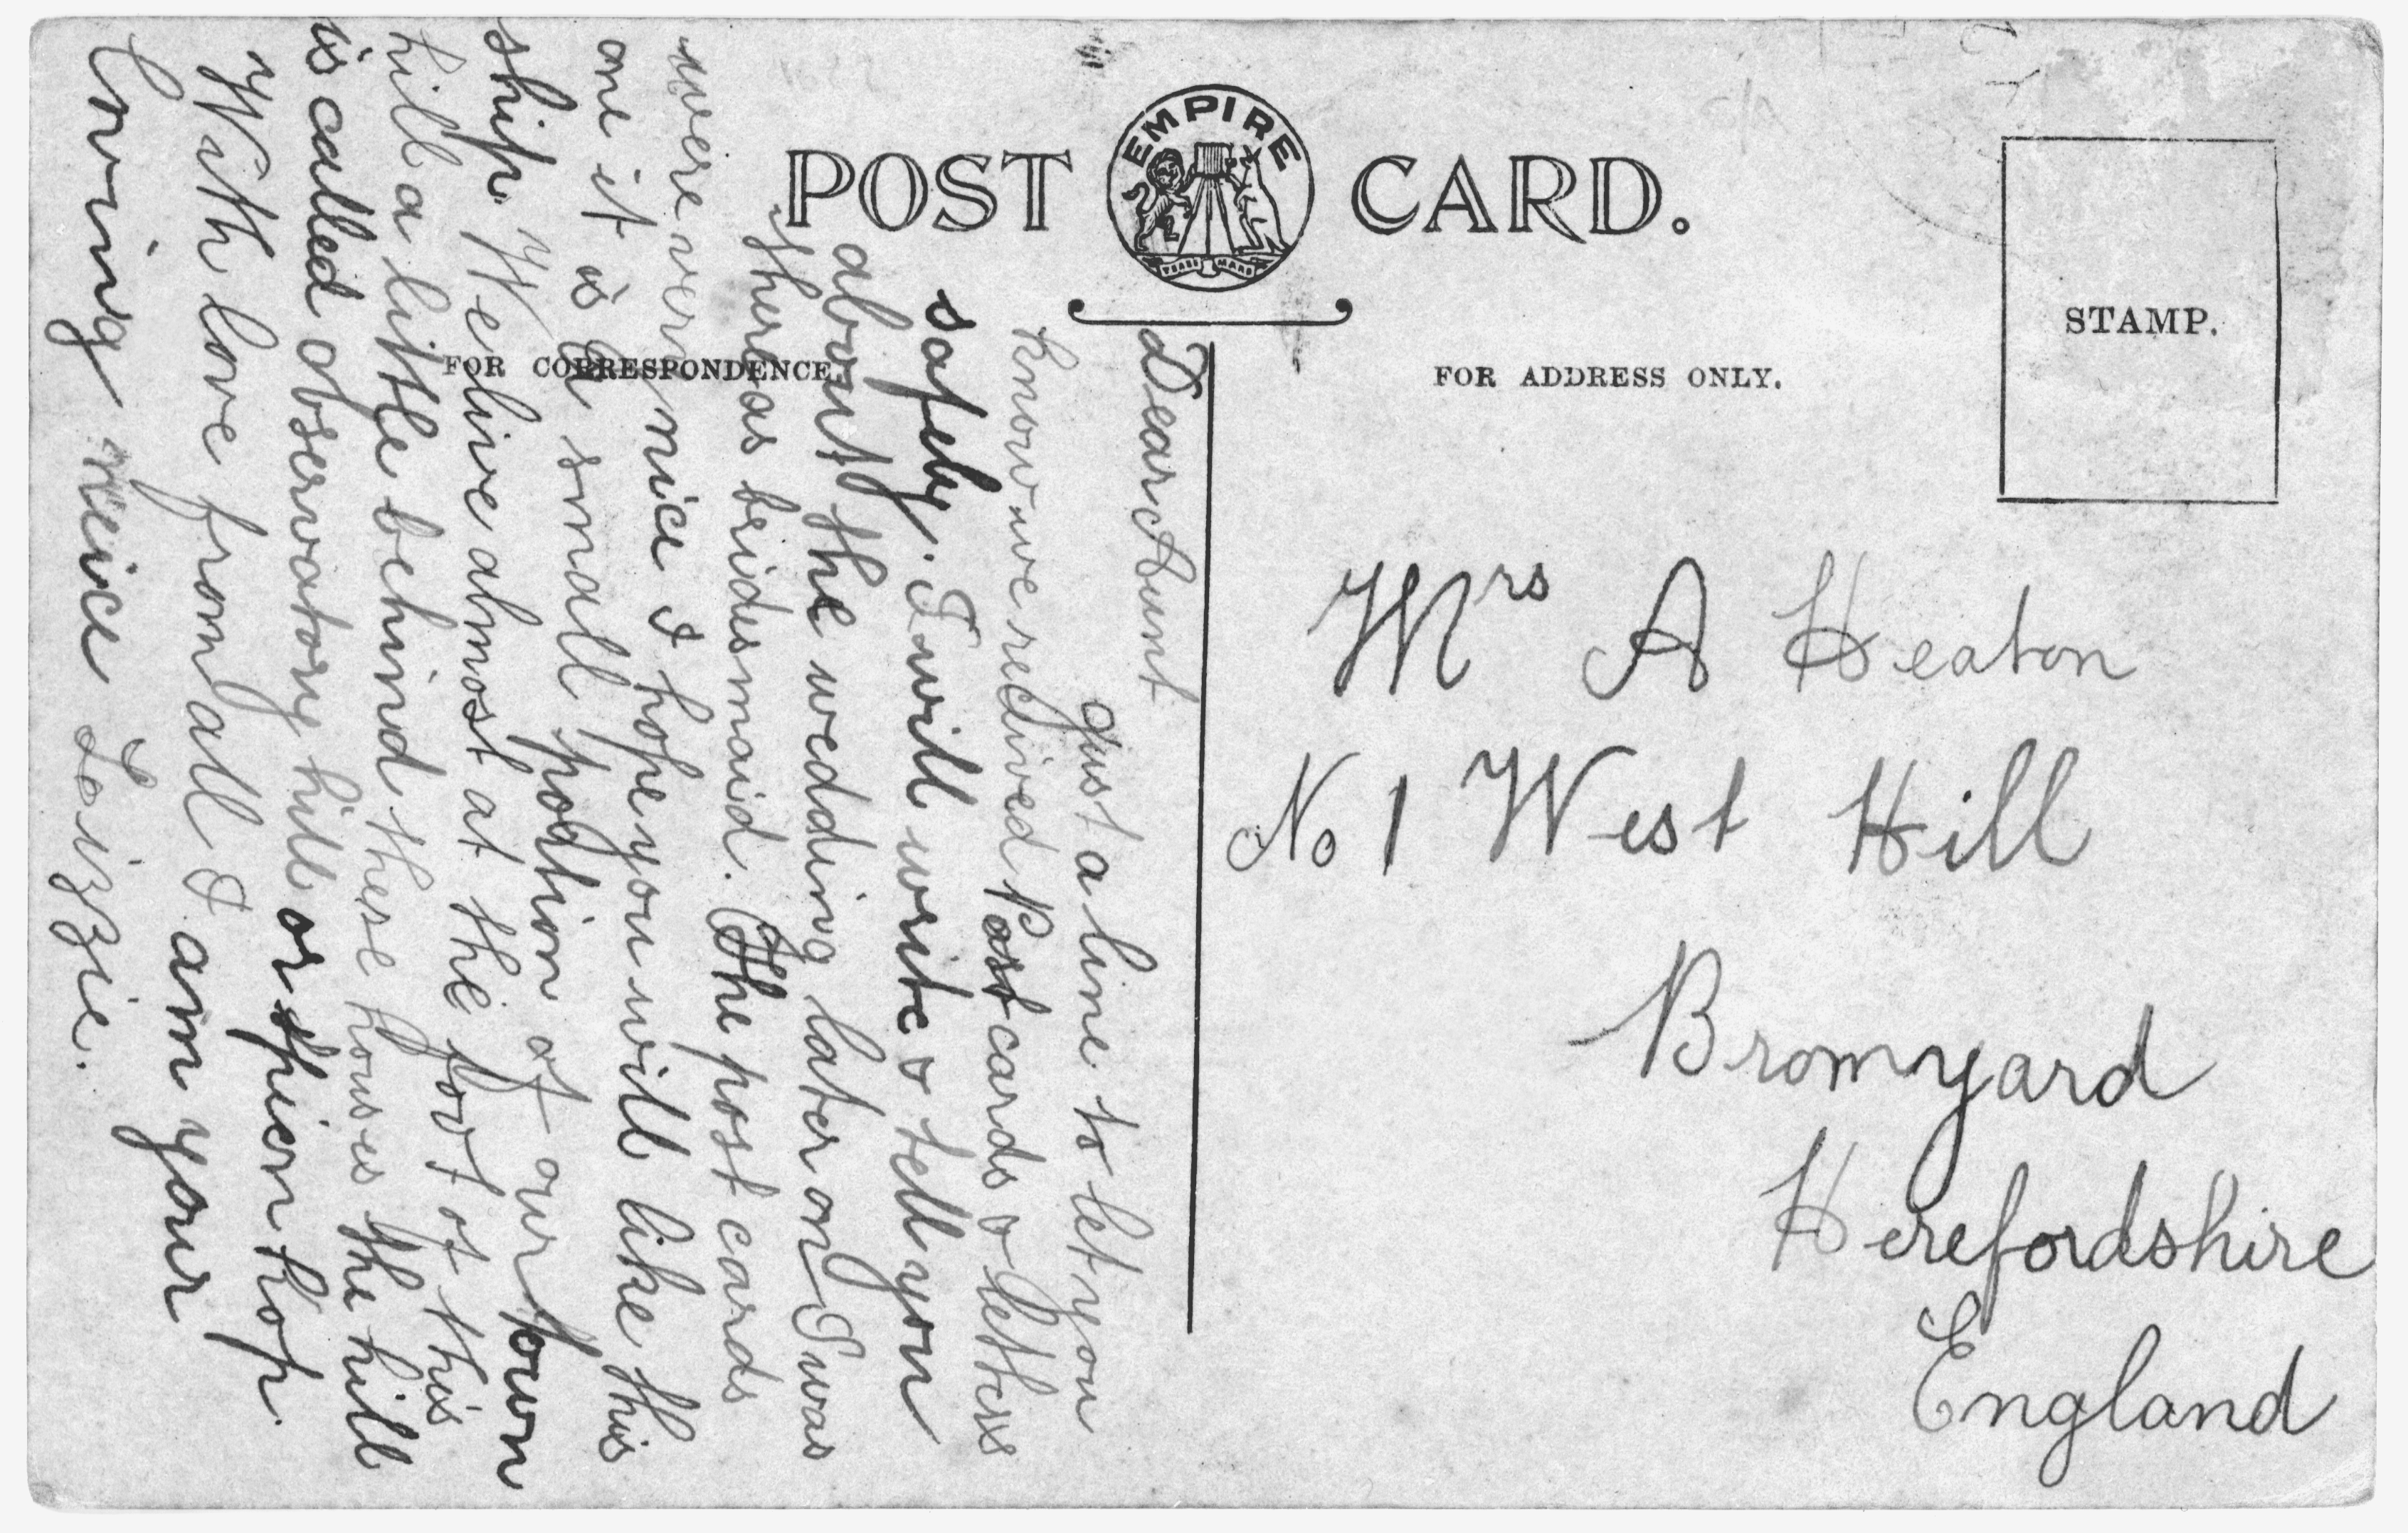 POST CARD.
EMPIRE
TRADE MARK
FOR CORRESPONDENCE.
FOR ADDRESS ONLY.
STAMP.
Dear Aunt
Just a line to let you
know we recieved Post cards & letters
safely. I will write & tell you
about the wedding later on I was
there as bridesmaid. The post cards
were very nice I hope you will like this
one it is a small portion of our town
ship. We live almost at the foot of this
hill a little behind these houses the hill
is called observatory hill or spion kop.
With love from all I am your
loving neice Lizzie.
Mrs A Heaton
No 1 West Hill
Bromyard
Herefordshire
England